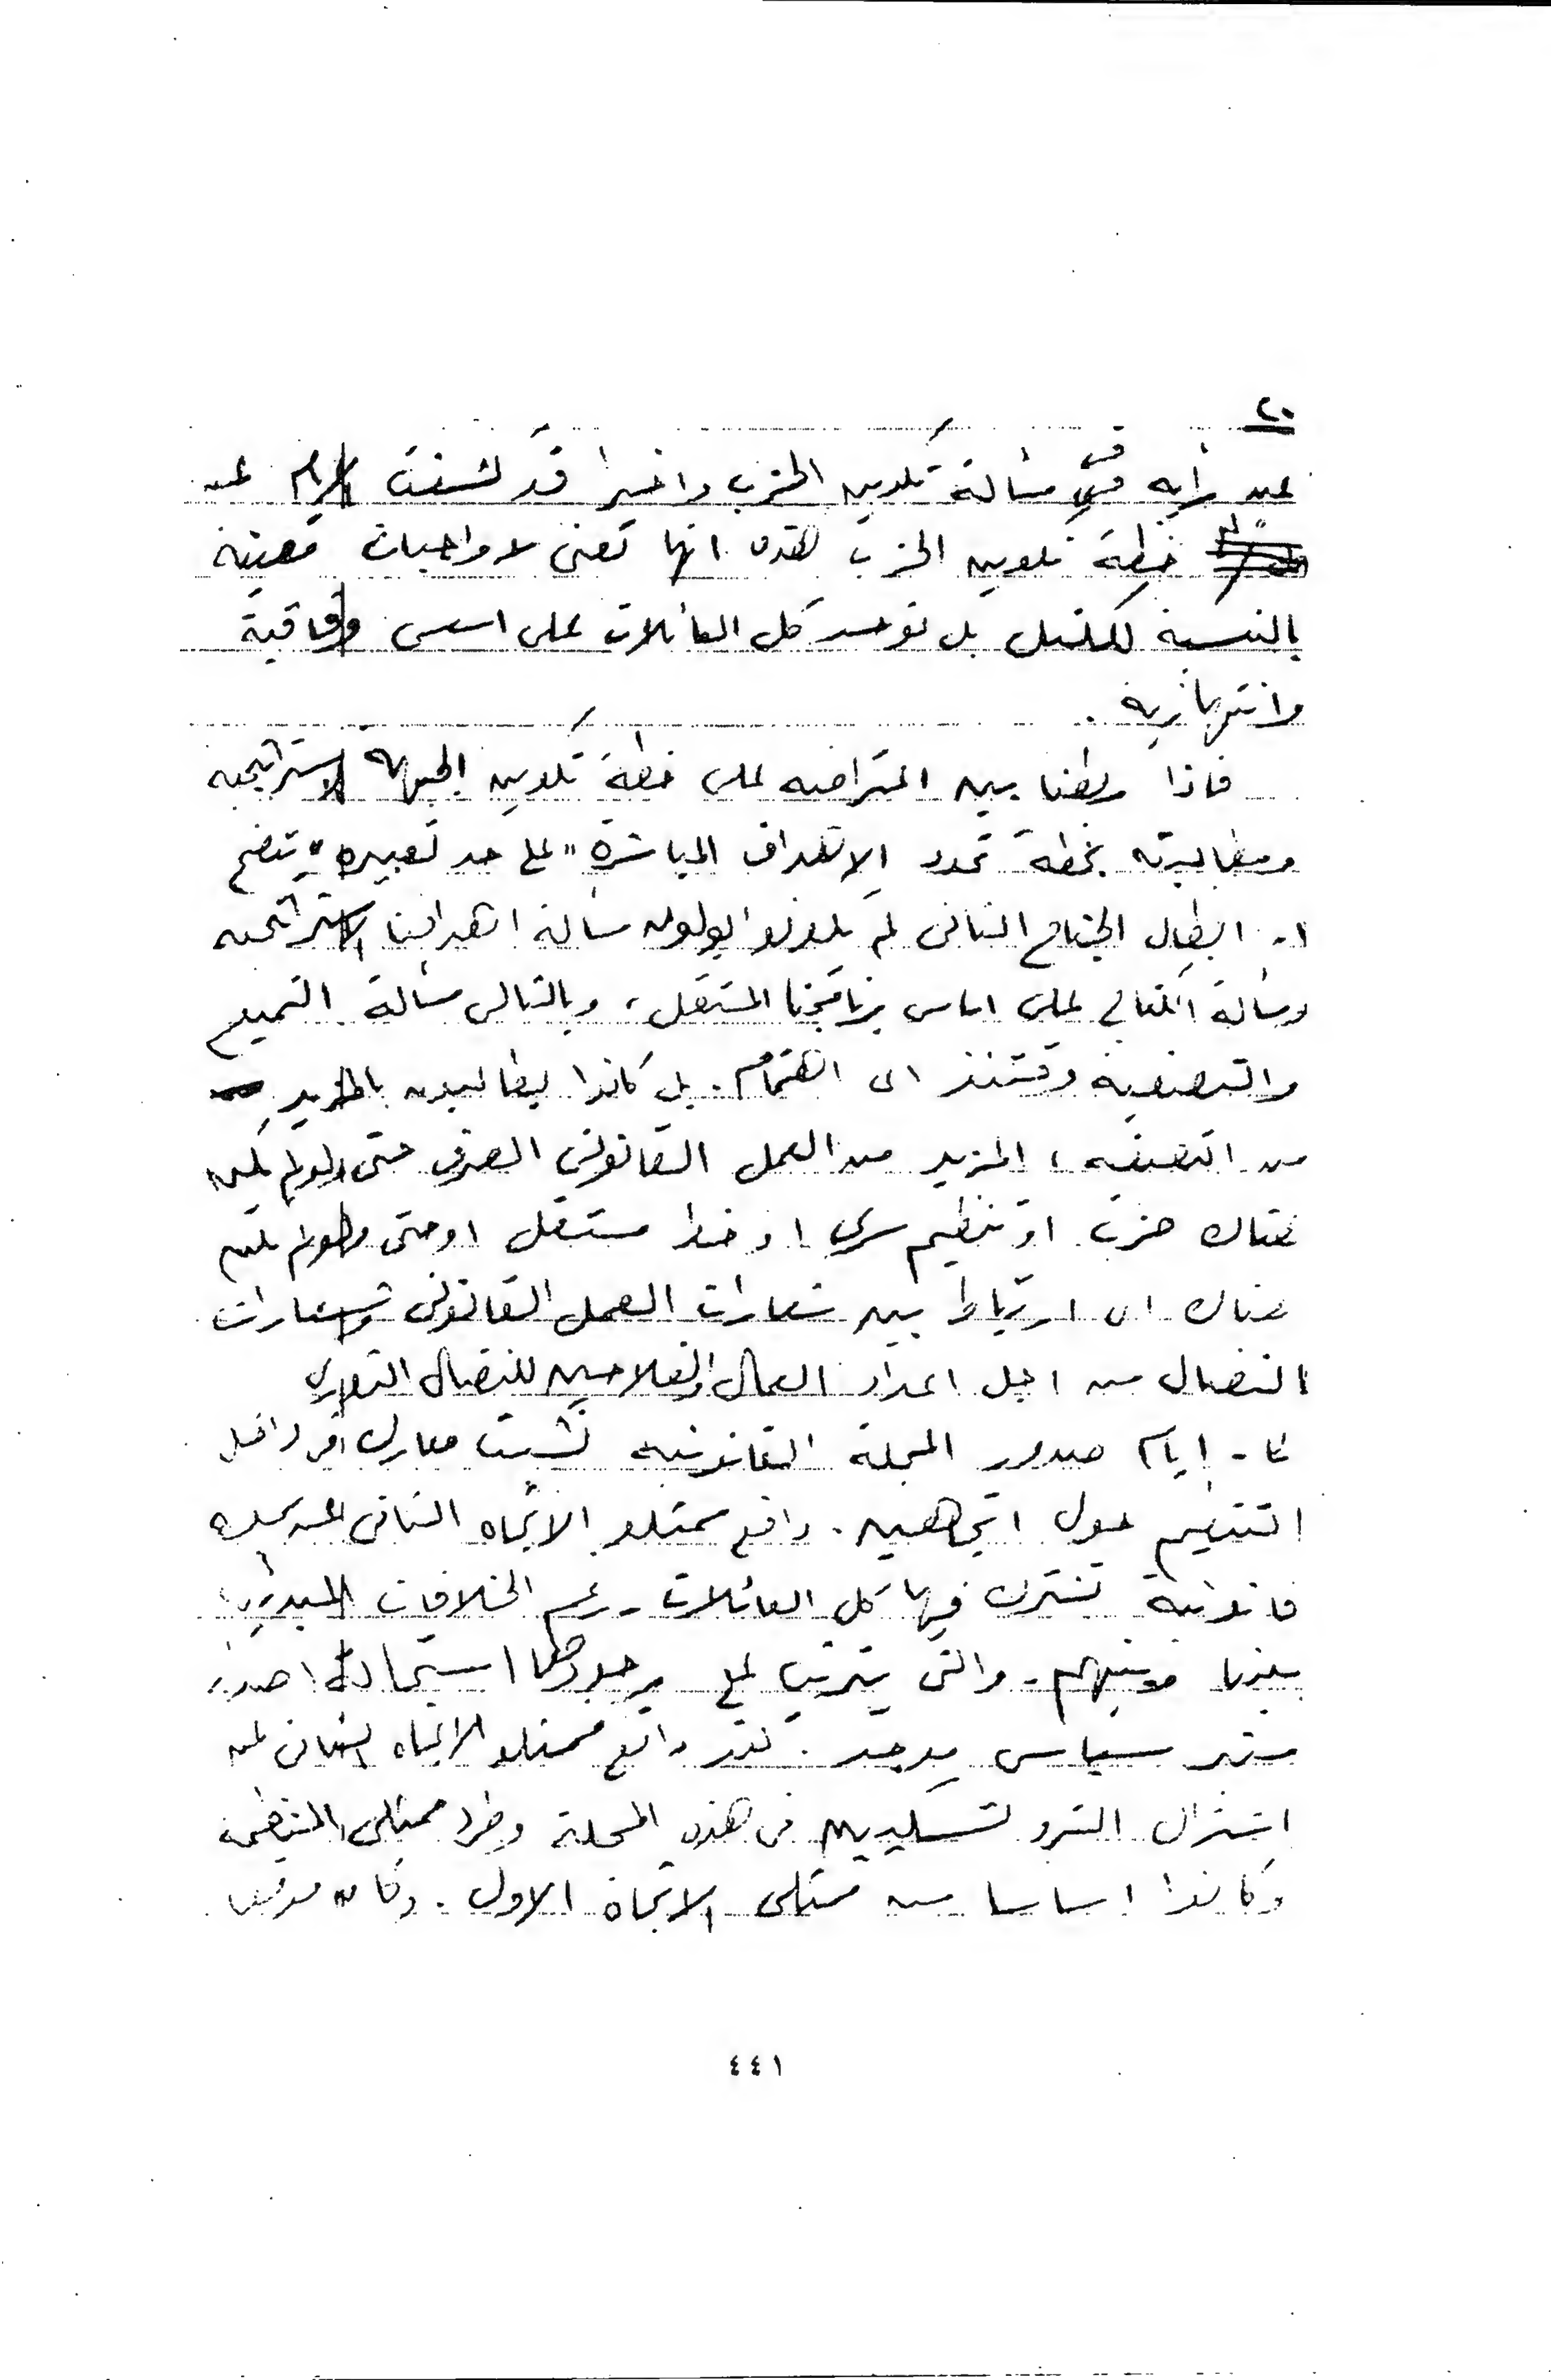 ٢٠
عن رأيه في مسألة تكوين الحزب واخيرا قد كشفت الايام عن
خطة تكوين الحزب هذه انها تعنى لا واجبات معينة
بالنسبة للكتل بل توحيد كل العائلات على اسس وفاقية
وانتهازية .
فاذا ربطنا بين اعتراضه على خطة تكوين الجبهة الاستراتيجية
ومطالبته بخطة تحدد الاهداف المباشرة " على حد تعبيره " يتضح
١ - ابطال الجناح الثانى لم يكونوا يولون مسألة اهدافنا الاستراتيجية
ومسألة الكفاح على اساس برنامجنا المستقل ، وبالتالى مسألة التمييع
والتصفية وقتئذ اى اهتمام . بل كانوا يطالبون بالمزيد
من التصفية ، المزيد من العمل القانونى الصرف حتى ولو لم يكن
هناك حزب او تنظيم سرى او خط مستقل او حتى ولو لم يكن
هناك اى ارتباط بين شعارات العمل القانونى وشعارات
النضال من اجل اعداد العمال والفلاحين للنضال الثورى
٢ - ايام صدور المجلة القانونية نشبت معارك اخرى داخل
التنظيم حول اتجاهين . دافع ممثلو الاتجاه الثانى عن مجلة
قانونية تشترك فيها كل العائلات - رغم الخلافات المبدئية
بيننا وبينهم - والتى يترتب على وجودها استحالة اصدار
منبر سياسى موحد . لقد دافع ممثلو الاتجاه الثانى عن
اشتراك التروتسكيين فى هذه المجلة وطرد ممثلى المنظمة
وكانوا اساسا من ممثلى الاتجاه الاول . وكان موقف
٤٤١